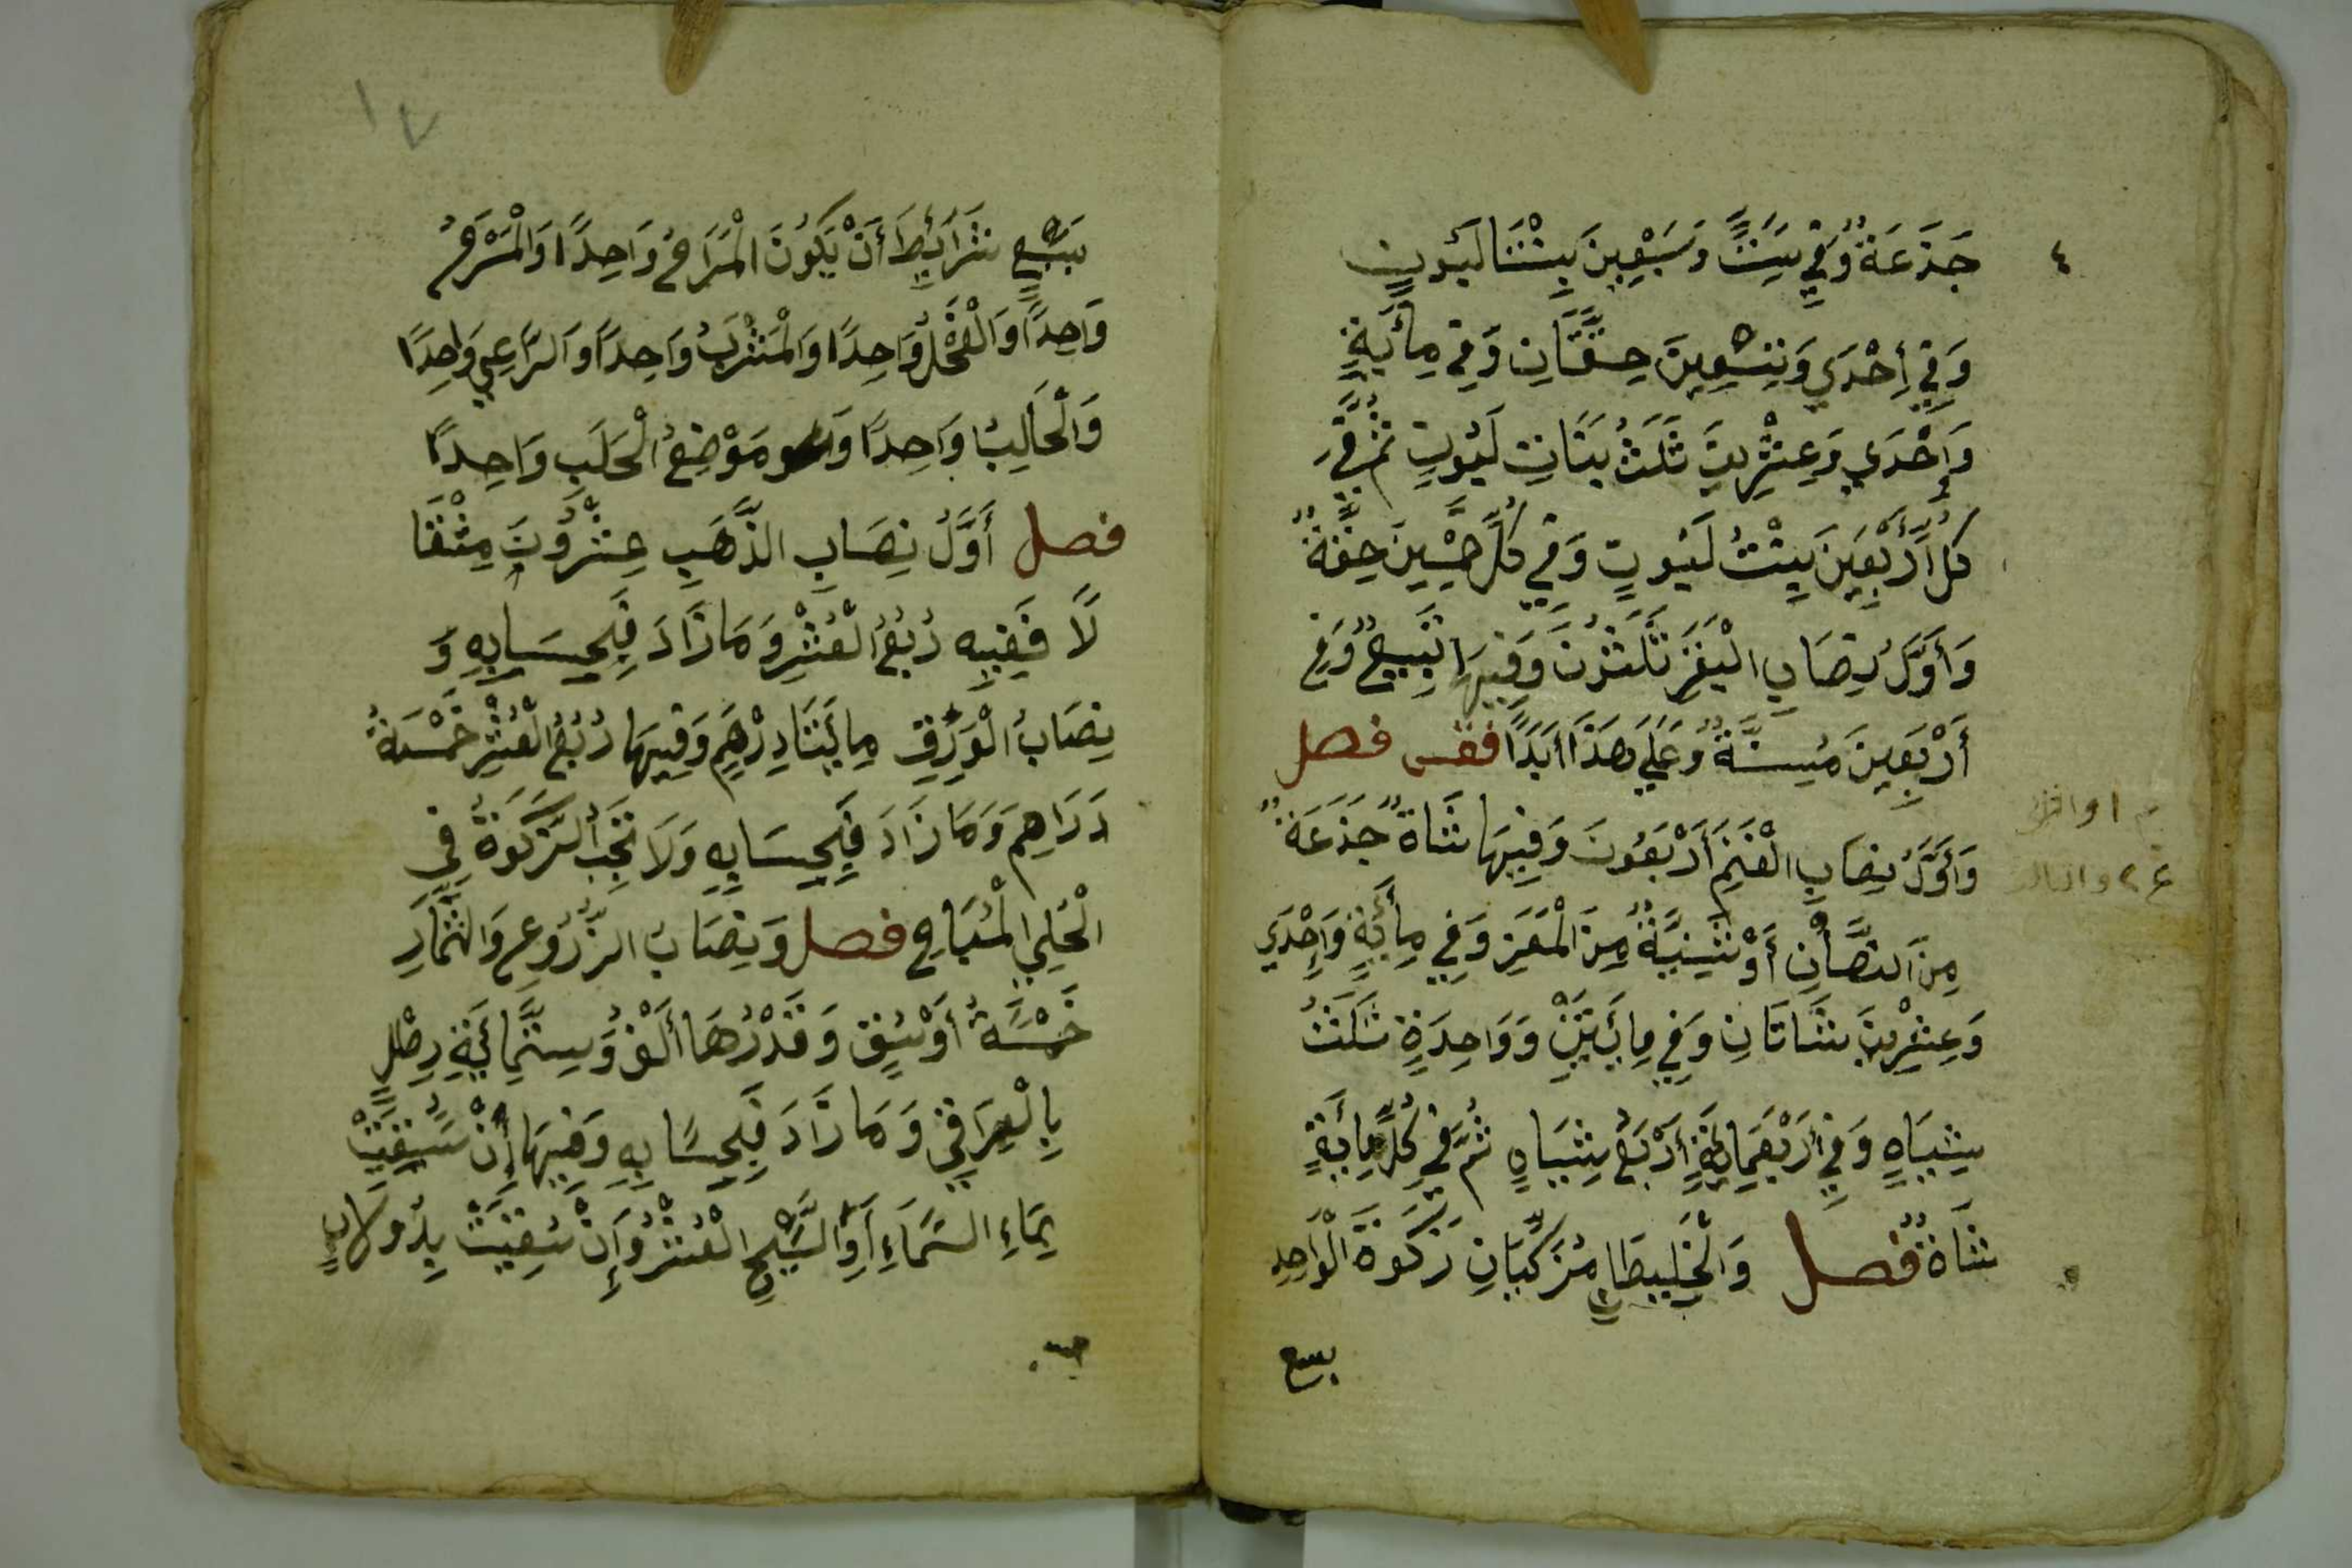 ٤
جَذَعَةٌ وَفِي سِتٍّ وَسَبْعِينَ بِنْتَا لَبُوتٍ
وَفِي إِحْدَي وَتِسْعِينَ حِقَّتَانِ وَفِي مِائَةٍ
وَإِحْدَي وَعِشْرِينَ ثَلَثُ بَنَاتِ لَبُوتٍ ثُمَّ فِي
كُلِّ أَرْبَعِينَ بِنْتُ لَبُوتٍ وَفِي كُلِّ خَمْسِينَ حِقَّةٌ
وَأَوَّلُ نِصَابِ الْبَقَرِ ثَلَثُونَ وَفِيهَا تَبِيعٌ وَفِي
أَرْبَعِينَ مُسِنَّةٌ وَعَلَي هَذَا أَبَدًا فقس فصل
وَأَوَّلُ نِصَابِ الْغَنَمِ أَرْبَعُونَ وَفِيهَا شَاةٌ جَذَعَةٌ
مِنَ الضَّأْنِ أَوْ ثَنِيَّةٌ مِنَ الْمَعَزِ وَفِي مِائَةٍ وَإِحْدَي
وَعِشْرِينَ شَاتَانِ وَفِي مِائَتَيْنِ وَوَاحِدَةٍ ثَلَثُ
شِيَاهٍ وَفِي أَرْبَعِمِائَةٍ أَرْبَعُ شِيَاهٍ ثُمَّ فِي كُلِّ مِائَةٍ
شَاةٌ فصل وَالْخَلِيطَانِ مُزَكِّيَانِ زَكَوةَ الْوَاحِدِ
بسبع
١٧
بِسَبْعِ شَرَايِطَ أَنْ يَكُونَ الْمَرَاحُ وَاحِدًا وَالْمَسْرَحُ
وَاحِدًا وَالْفَحْلُ وَاحِدًا وَالْمَشْرَبُ وَاحِدًا وَالرَّاعِي وَاحِدًا
وَالْحَالِبُ وَاحِدًا وَمَوْضِعُ الْحَلَبِ وَاحِدًا
فصل أَوَّلُ نِصَابِ الذَّهَبِ عِشْرُونَ مِثْقَا
لًا فَفِيهِ رُبْعُ الْعُشْرِ وَمَا زَادَ فَبِحِسَابِهِ وَ
نِصَابُ الْوَرِقِ مِائَتَا دِرْهَمٍ وَفِيهَا رُبْعُ الْعُشْرِ خَمْسَةُ
دَرَاهِمَ وَمَا زَادَ فَبِحِسَابِهِ وَلَا تَجِبُ الزَّكَوةُ فِي
الْحُلِيِّ الْمُبَاحِ فصل وَنِصَابُ الزُّرُوعِ وَالثِّمَارِ
خَمْسَةُ أَوْسُقٍ وَقَدْرُهَا أَلْفٌ وَسِتُّمِائَةِ رِطْلٍ
بِالْعِرَاقِي وَمَا زَادَ فَبِحِسَابِهِ وَفِيهَا إِنْ سُقِيَتْ
بِمَاءِ السَّمَاءِ أَوِ السَّيْحِ الْعُشْرُ وَإِنْ سُقِيَتْ بِدُولَابٍ